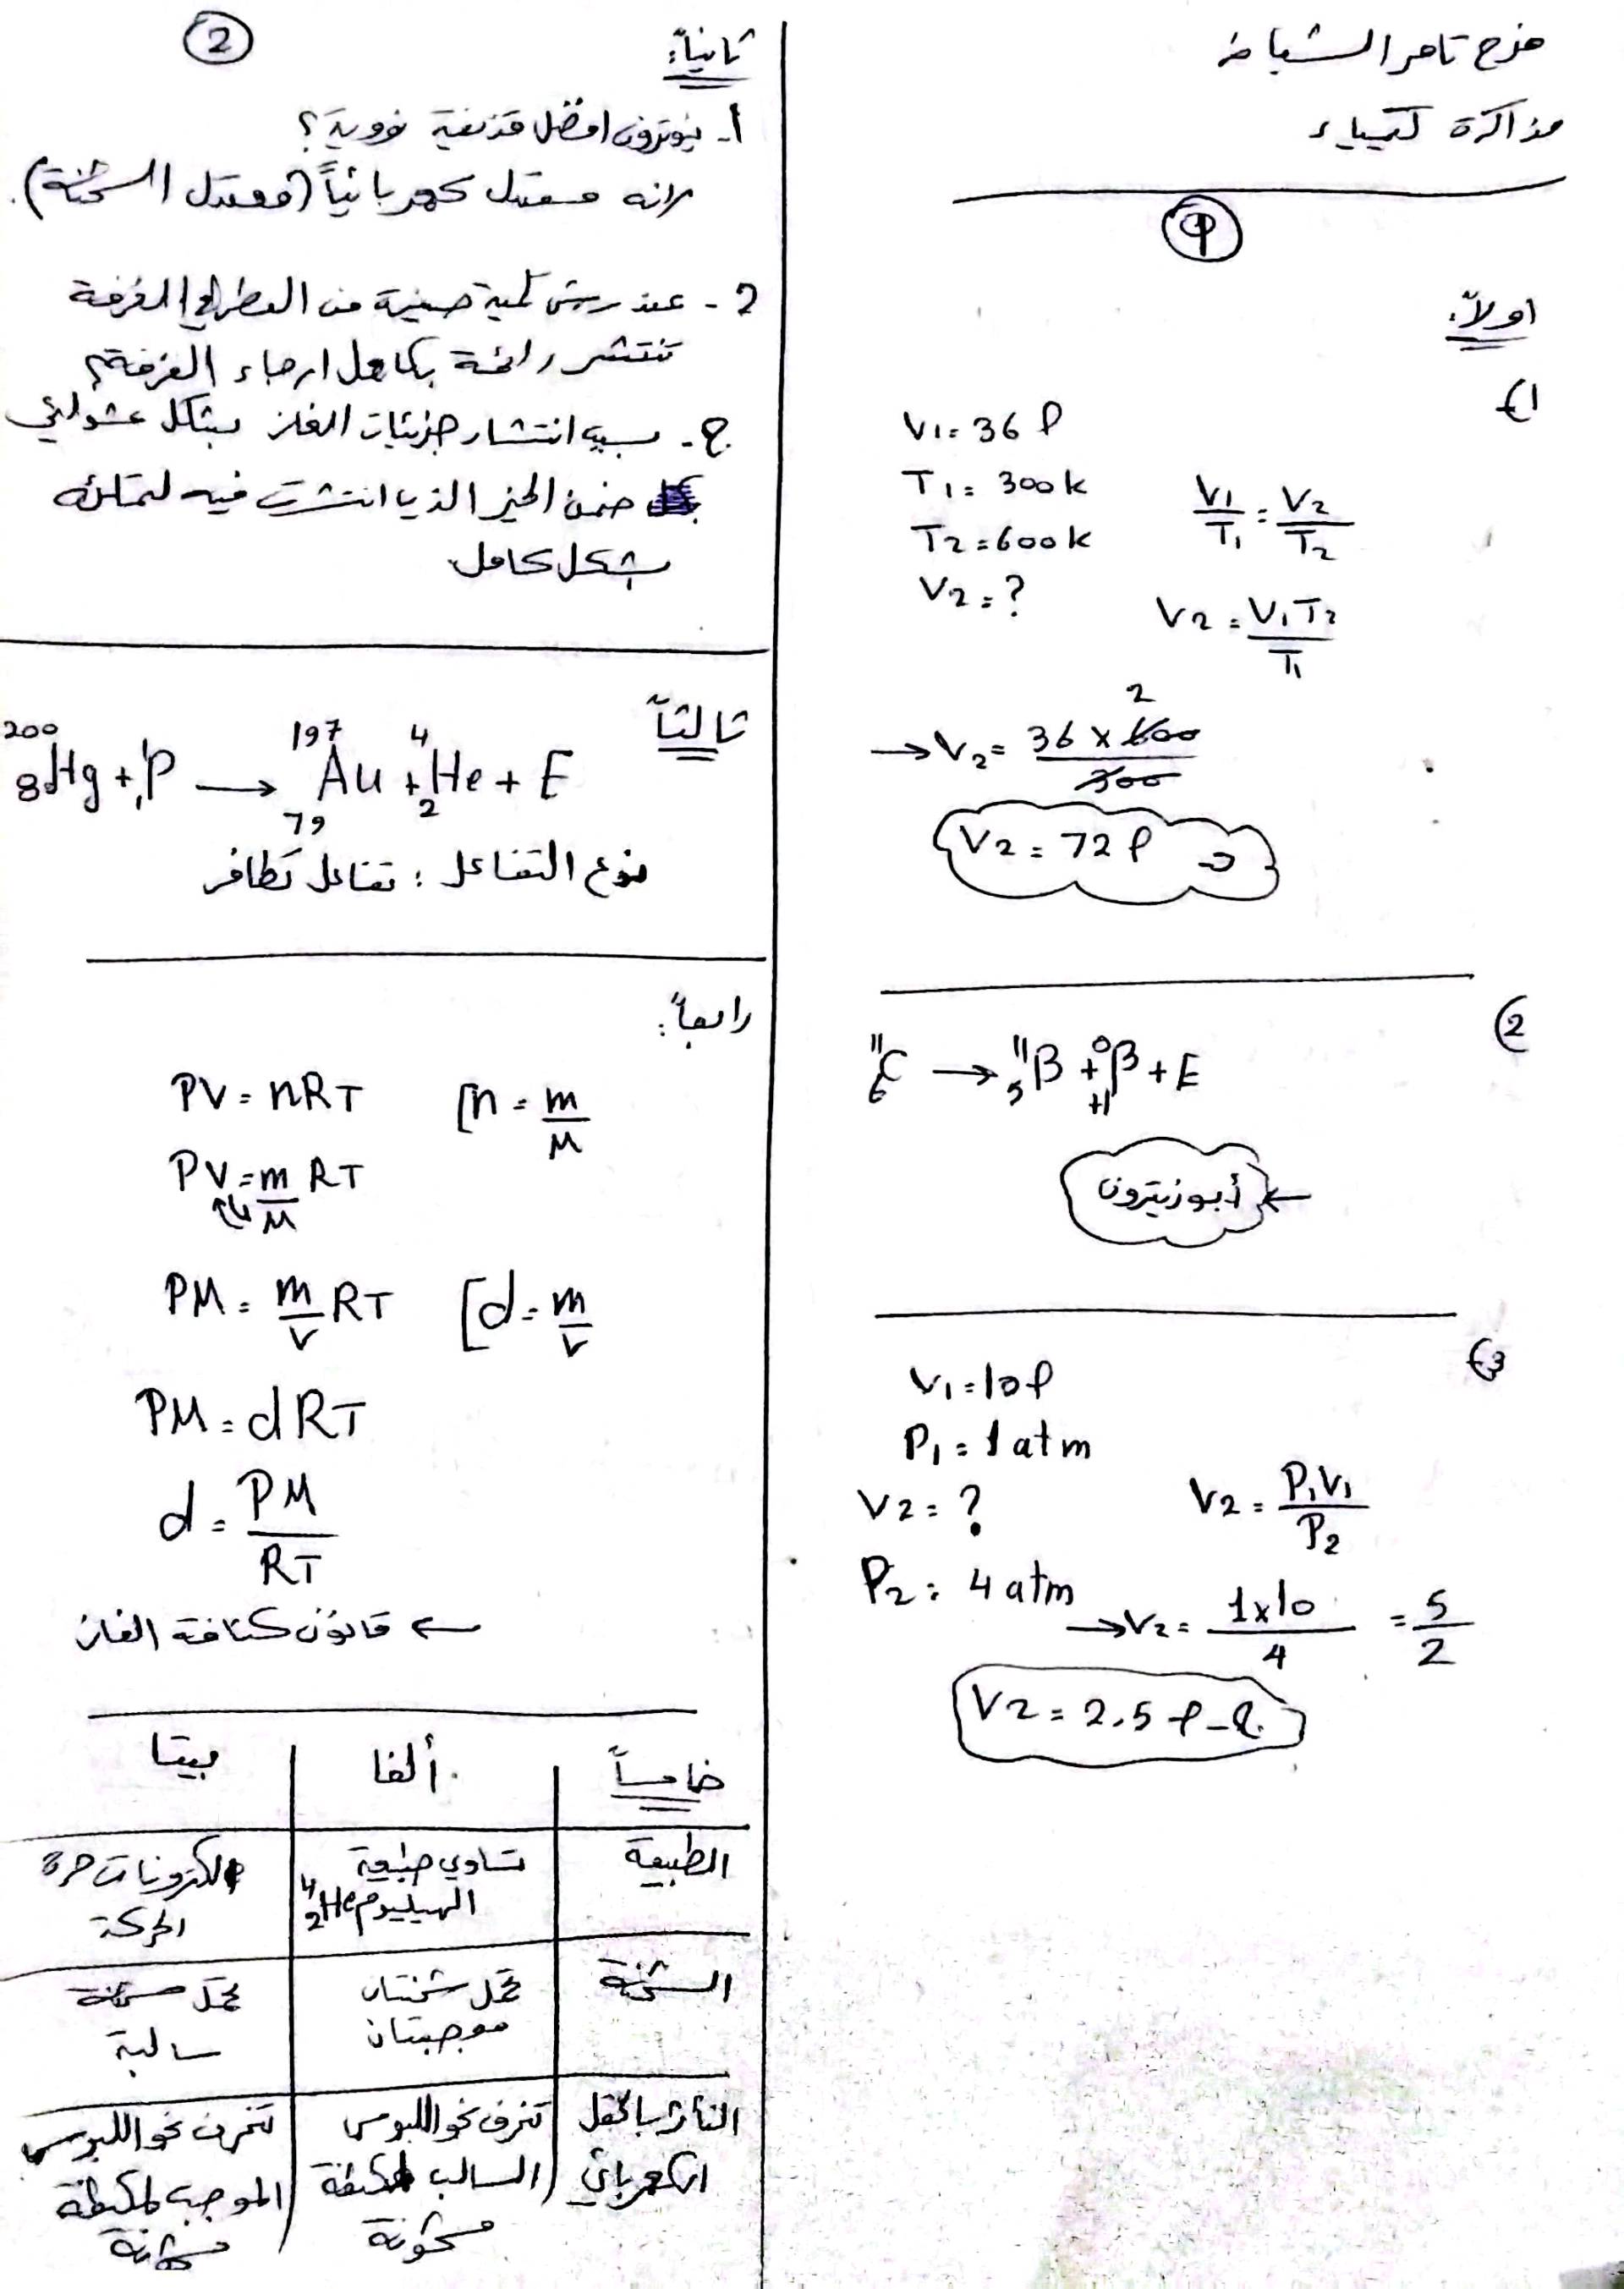 مذاكرة كيمياء
أولاً:
1)
V1 = 36 l
T1 = 300 k
T2 = 600 k
V2 = ?
V1/T1 = V2/T2
V2 = V1T2/T1
→ V2 = 36 × 600/300
2
V2 = 72 l
2)
11 6 C → 11 5 B + 0 +1 β + E
← أ. بوزيترون
3)
V1 = 10 l
P1 = 1 atm
V2 = ?
P2 = 4 atm
V2 = P1V1/P2
→ V2 = 1×10/4 = 5/2
V2 = 2.5 l
2
ثانياً:
1- نيوترون افضل قذيفة نووية؟
لانه معتدل كهربائياً (معتدل الشحنة).
2- عند رش كمية صغيرة من العطر في الغرفة
تنتشر رائحة بكامل ارجاء الغرفة؟
ج- بسبب انتشار جزيئات الغاز بشكل عشوائي
ضمن الحيز الذي انتشرت فيه لتملئه
بشكل كامل
ثالثاً
200 80 Hg + 1 1 P → 197 79 Au + 4 2 He + E
نوع التفاعل : تفاعل تطافر
رابعاً:
PV = nRT [n = m/M
PV = m/M RT
PM = m/V RT [d = m/V
PM = dRT
d = PM/RT
← قانون كثافة الغاز
خامساً ألفا بيتا
الطبيعة تساوي طبيعة الكترونات حرة
الهيليوم 4 2 He الحركة
الشحنة تحمل شحنتان تحمل شحنة
موجبتان سالبة
التأثر بالحقل تنحرف نحو اللبوس تنحرف نحو اللبوس
الكهربائي السالب لمكثفة الموجب لمكثفة
مشحونة مشحونة